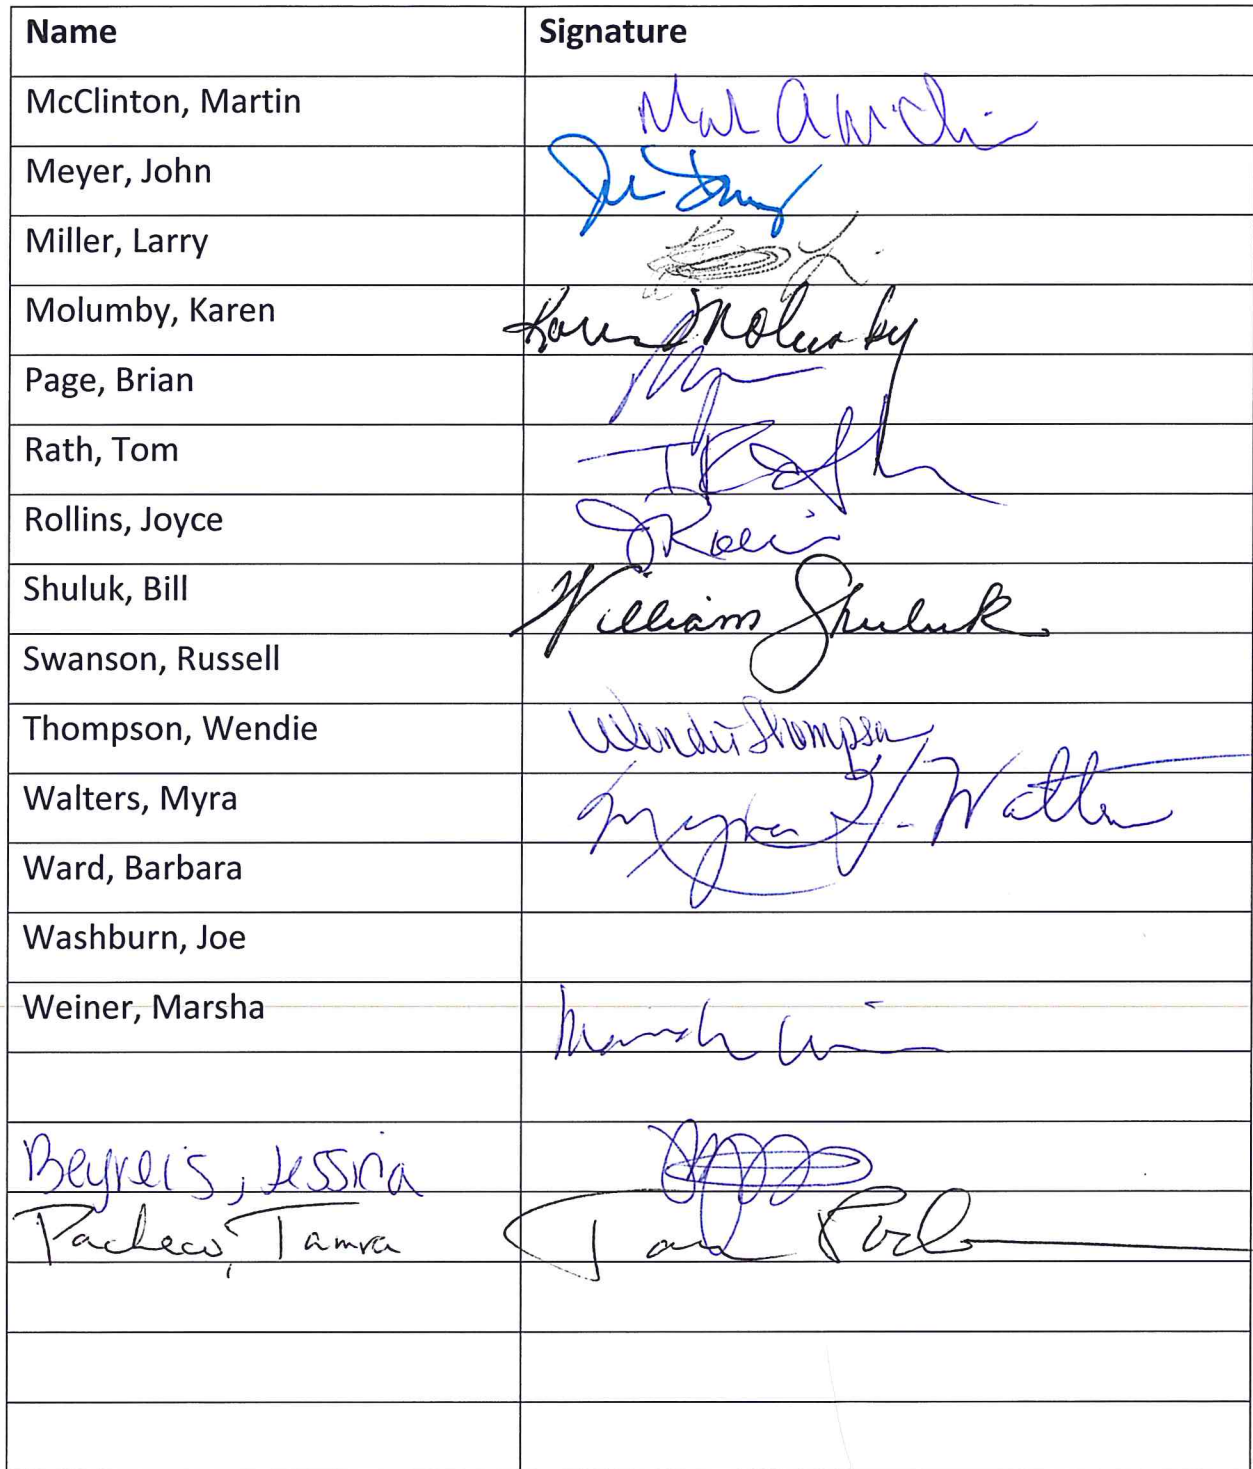 Name Signature
McClinton, Martin
Meyer, John
Miller, Larry
Molumby, Karen Karen Molumby
Page, Brian
Rath, Tom T Rath
Rollins, Joyce
Shuluk, Bill William Shuluk
Swanson, Russell
Thompson, Wendie Wendie Thompson
Walters, Myra Myra
Ward, Barbara
Washburn, Joe
Weiner, Marsha
Beyreis, Jessica
Pacheco, Tamra